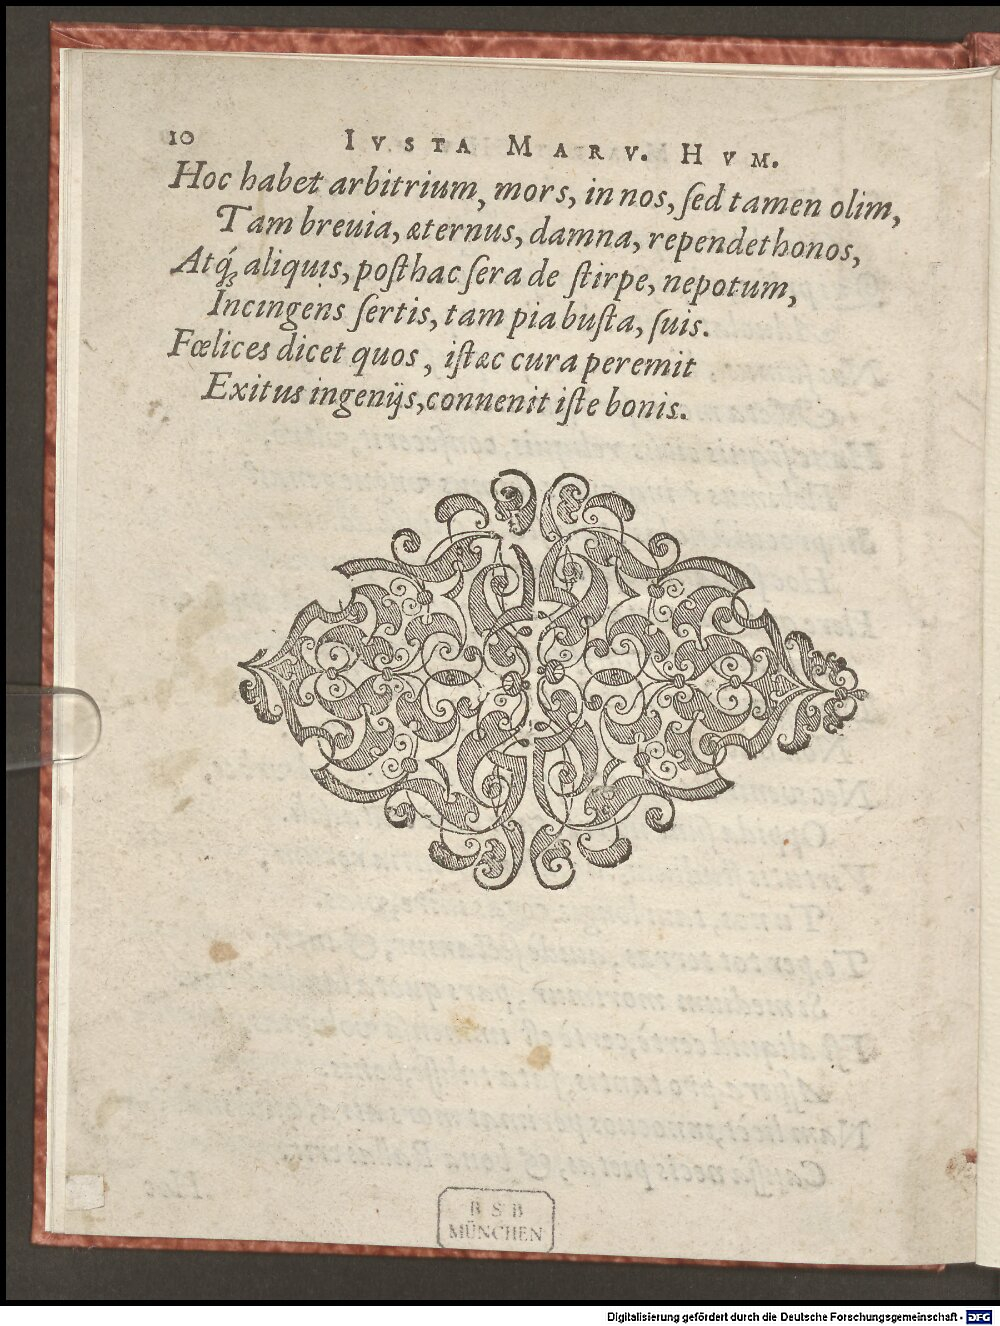 10 IVSTA MARV. HVM.
Hoc habet arbitrium, mors, in nos, ſed tamen olim,
Tam breuia, æternus, damna, rependet honos,
Atq́; aliquis, poſthac ſera de ſtirpe, nepotum,
Incingens ſertis, tam pia buſta, ſuis.
Fœlices dicet quos, iſtæc cura peremit
Exitus ingenijs, conuenit iſte bonis.
BSB
MÜNCHEN
Digitalisierung gefördert durch die Deutsche Forschungsgemeinschaft - DFG